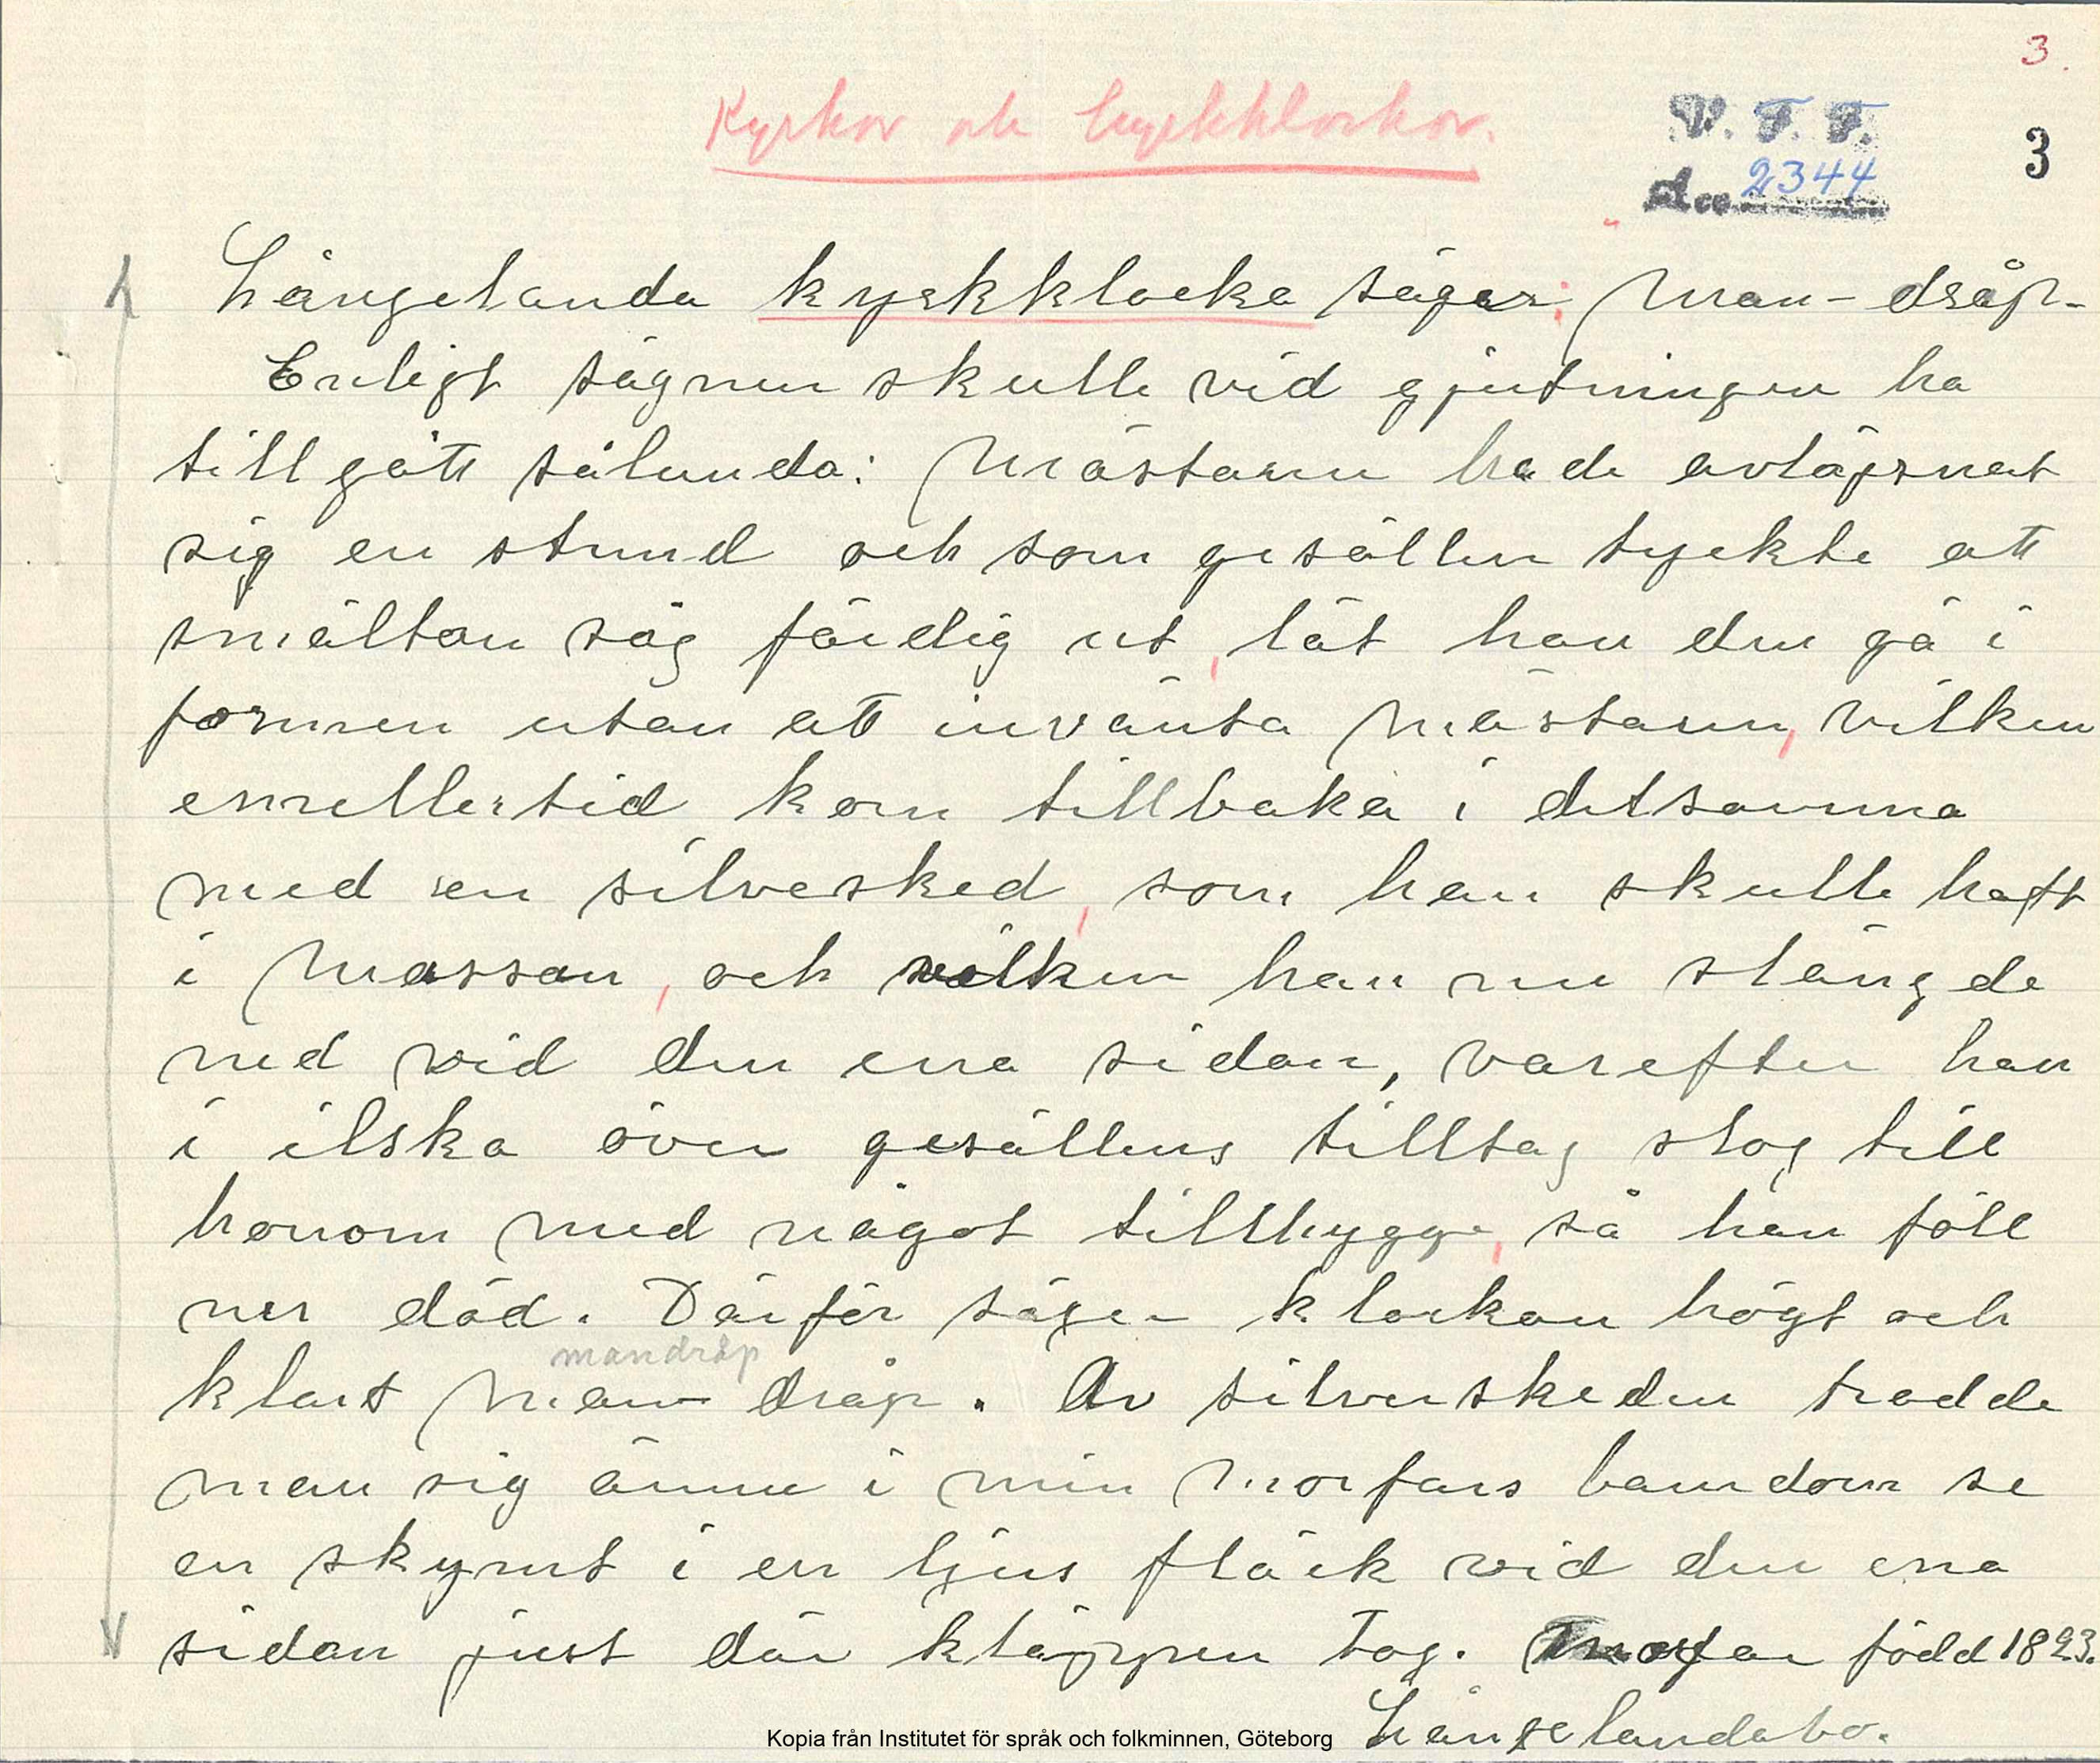 3.
Kyrkor och kyrkklockor.
V. F. F.
Acc 2344
3
Långelanda kyrkklocka säger: Man-dråp-
Enligt sägnen skulle vid gjutningen ha
tillgått sålunda: Mästaren hade avlägsnat
sig en stund och som gesällen tyckte att
smältan såg färdig ut, lät han den gå i
formen utan att invänta mästaren, vilken
emellertid kom tillbaka i detsamma
med en silvesked, som han skulle haft
i massan, och vilken han nu slängde
ned vid den ena sidan, varefter han
i ilska över gesällens tilltag slog till
honom med något tillhygge, så han föll
ner död. Därför säger klockan högt och
mandråp
klart Man dråp. Av silverskeden trodde
man sig ännu i min morfars barndom se
en skymt i en ljus fläck vid den ena
sidan just där kläppen tog. Morfar född 1823.
Långelandabo.
Kopia från Institutet för språk och folkminnen, Göteborg